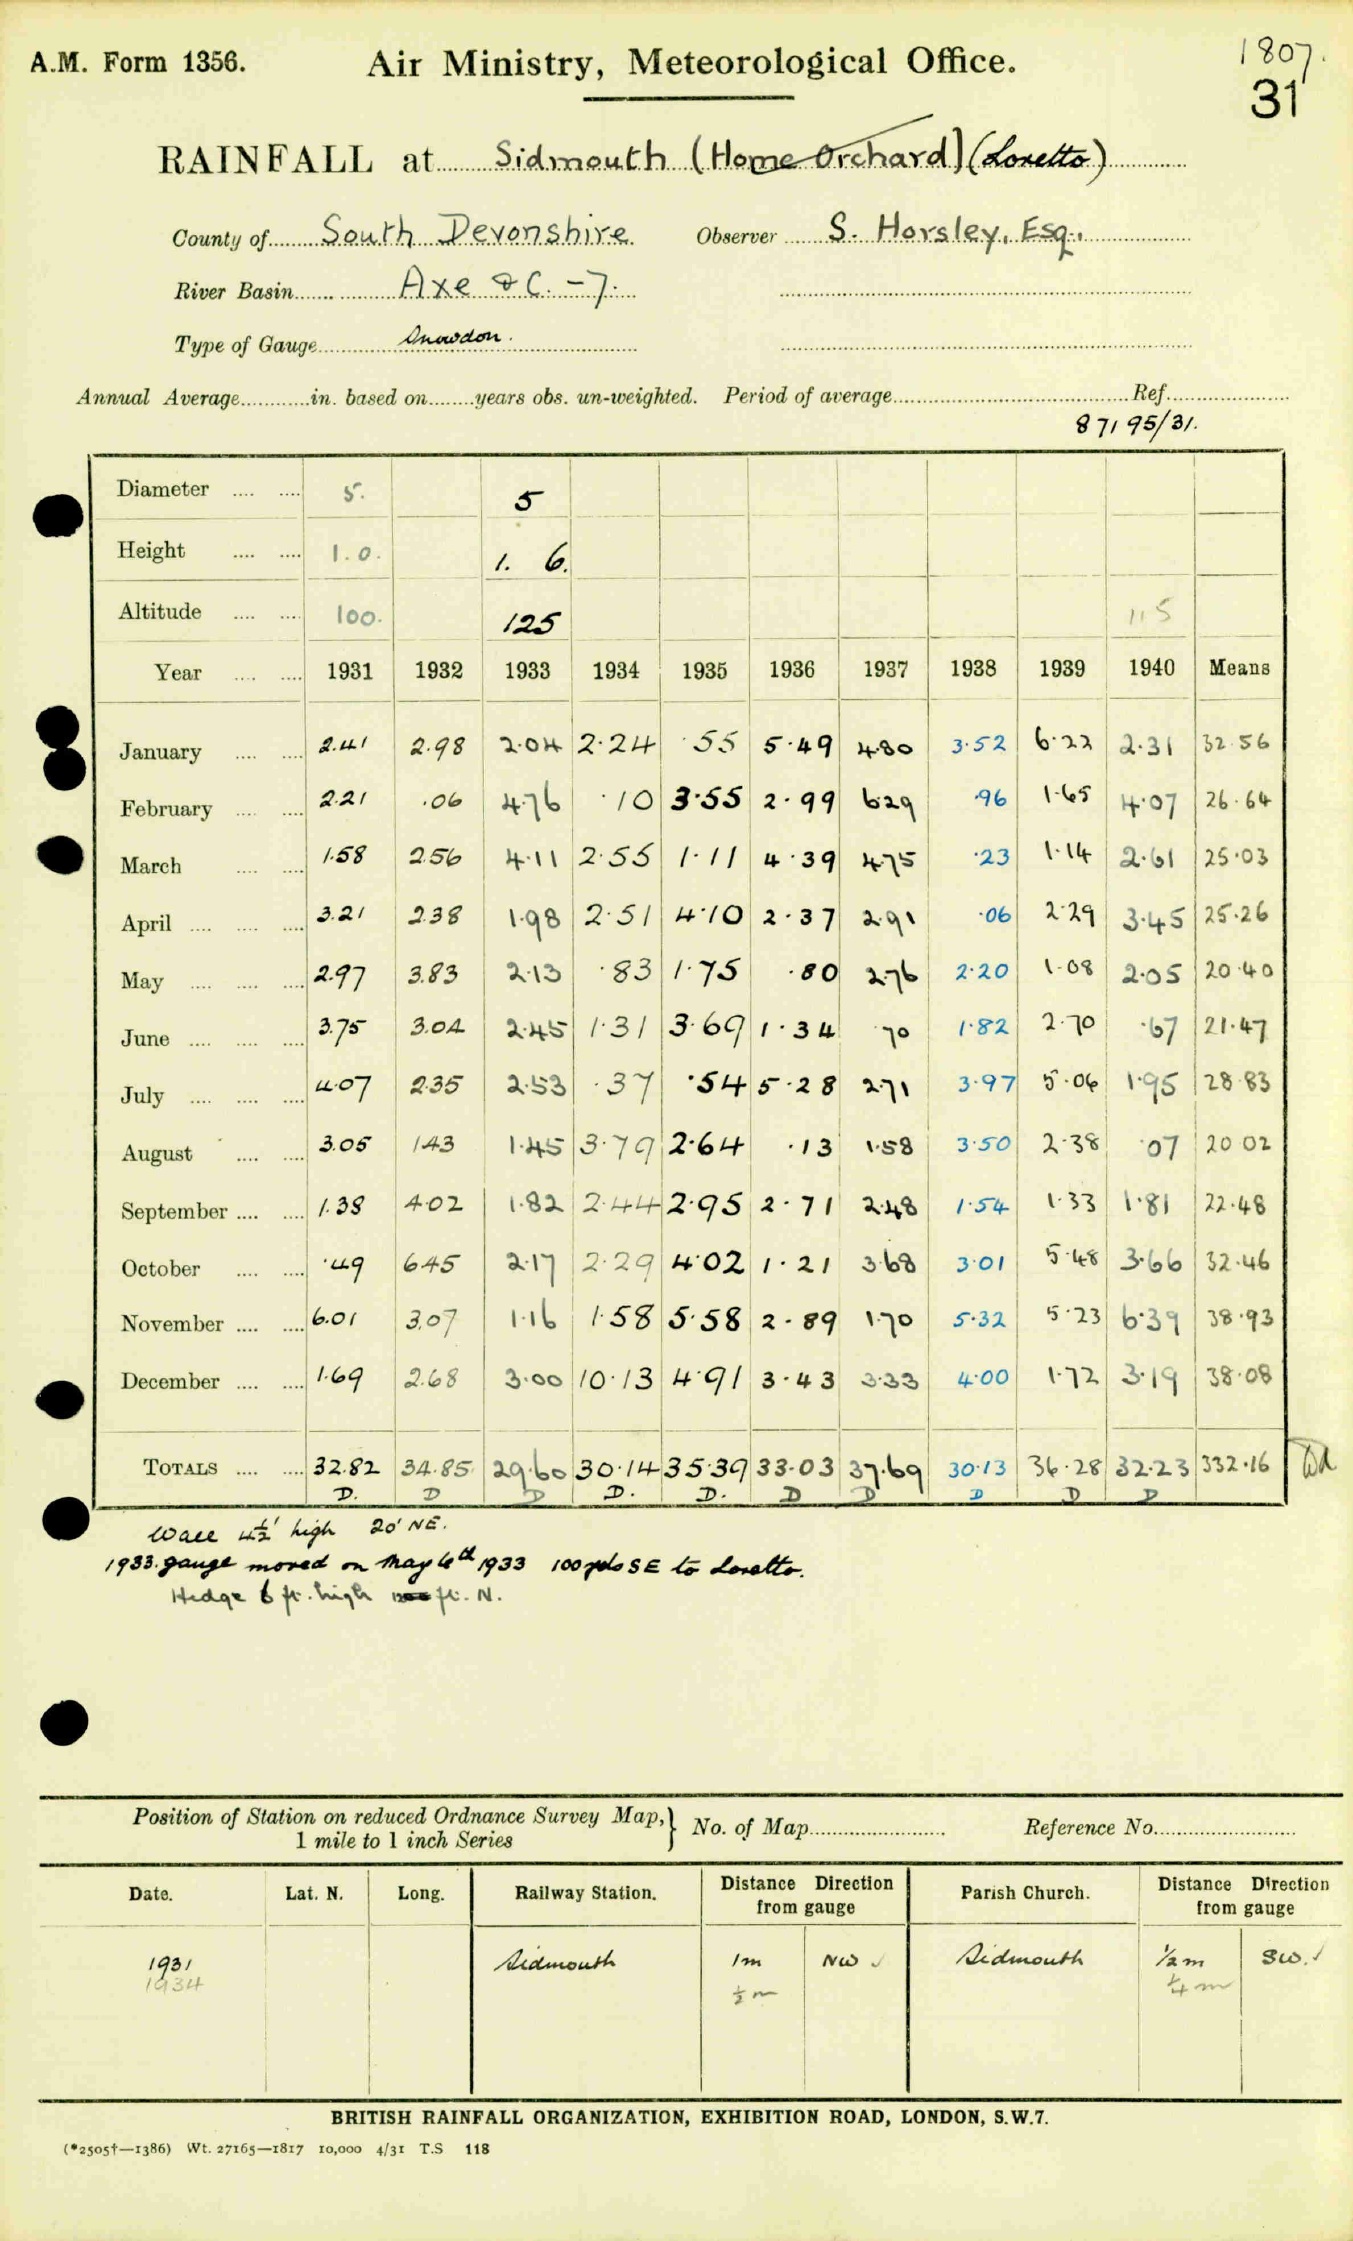 A.M. Form 1356.
Air Ministry, Meteorological Office.
1807.
31
RAINFALL at Sidmouth (Home Orchard) (Loretto)
County of South Devonshire Observer S. Horsley, Esq.,
River Basin Axe &C. -7.
Type of Gauge Snowdon.
Annual Average in. based on years obs. un-weighted. Period of average Ref.
87195/31.
Diameter 5. 5
Height 1.0. 1. 6.
Altitude 100. 125 115
Year 1931 1932 1933 1934 1935 1936 1937 1938 1939 1940 Means
January 2.41 2.98 2.04 2.24 .55 5.49 4.80 3.52 6.22 2.31 32.56
February 2.21 .06 4.76 .10 3.55 2.99 6.29 .96 1.65 4.07 26.64
March 1.58 2.56 4.11 2.55 1.11 4.39 4.75 .23 1.14 2.61 25.03
April 3.21 2.38 1.98 2.51 4.10 2.37 2.91 .06 2.29 3.45 25.26
May 2.97 3.83 2.13 .83 1.75 .80 2.76 2.20 1.08 2.05 20.40
June 3.75 3.04 2.45 1.31 3.69 1.34 .70 1.82 2.70 .67 21.47
July 4.07 2.35 2.53 .37 .54 5.28 2.71 3.97 5.06 1.95 28.83
August 3.05 1.43 1.45 3.79 2.64 .13 1.58 3.50 2.38 .07 20.02
September 1.38 4.02 1.82 2.44 2.95 2.71 2.48 1.54 1.33 1.81 22.48
October .49 6.45 2.17 2.29 4.02 1.21 3.68 3.01 5.48 3.66 32.46
November 6.01 3.07 1.16 1.58 5.58 2.89 1.70 5.32 5.23 6.39 38.93
December 1.69 2.68 3.00 10.13 4.91 3.43 3.33 4.00 1.72 3.19 38.08
TOTALS 32.82 34.85 29.60 30.14 35.39 33.03 37.69 30.13 36.28 32.23 332.16
D. D D D. D. D D D D D
Wall 4½' high 20' NE.
1933. gauge moved on May 6th 1933 100 yds SE to Loretto.
Hedge 6 ft. high ft. N.
Position of Station on reduced Ordnance Survey Map, } No. of Map Reference No.
1 mile to 1 inch Series
Date. Lat. N. Long. Railway Station. Distance Direction from gauge Parish Church. Distance Direction from gauge
1931 Sidmouth 1m NW ✓ Sidmouth ½ m SW. ✓
1934 ½ m ¼ m
BRITISH RAINFALL ORGANIZATION, EXHIBITION ROAD, LONDON, S.W.7.
(*2505†—1386) Wt. 27165—1817 10,000 4/31 T.S 118